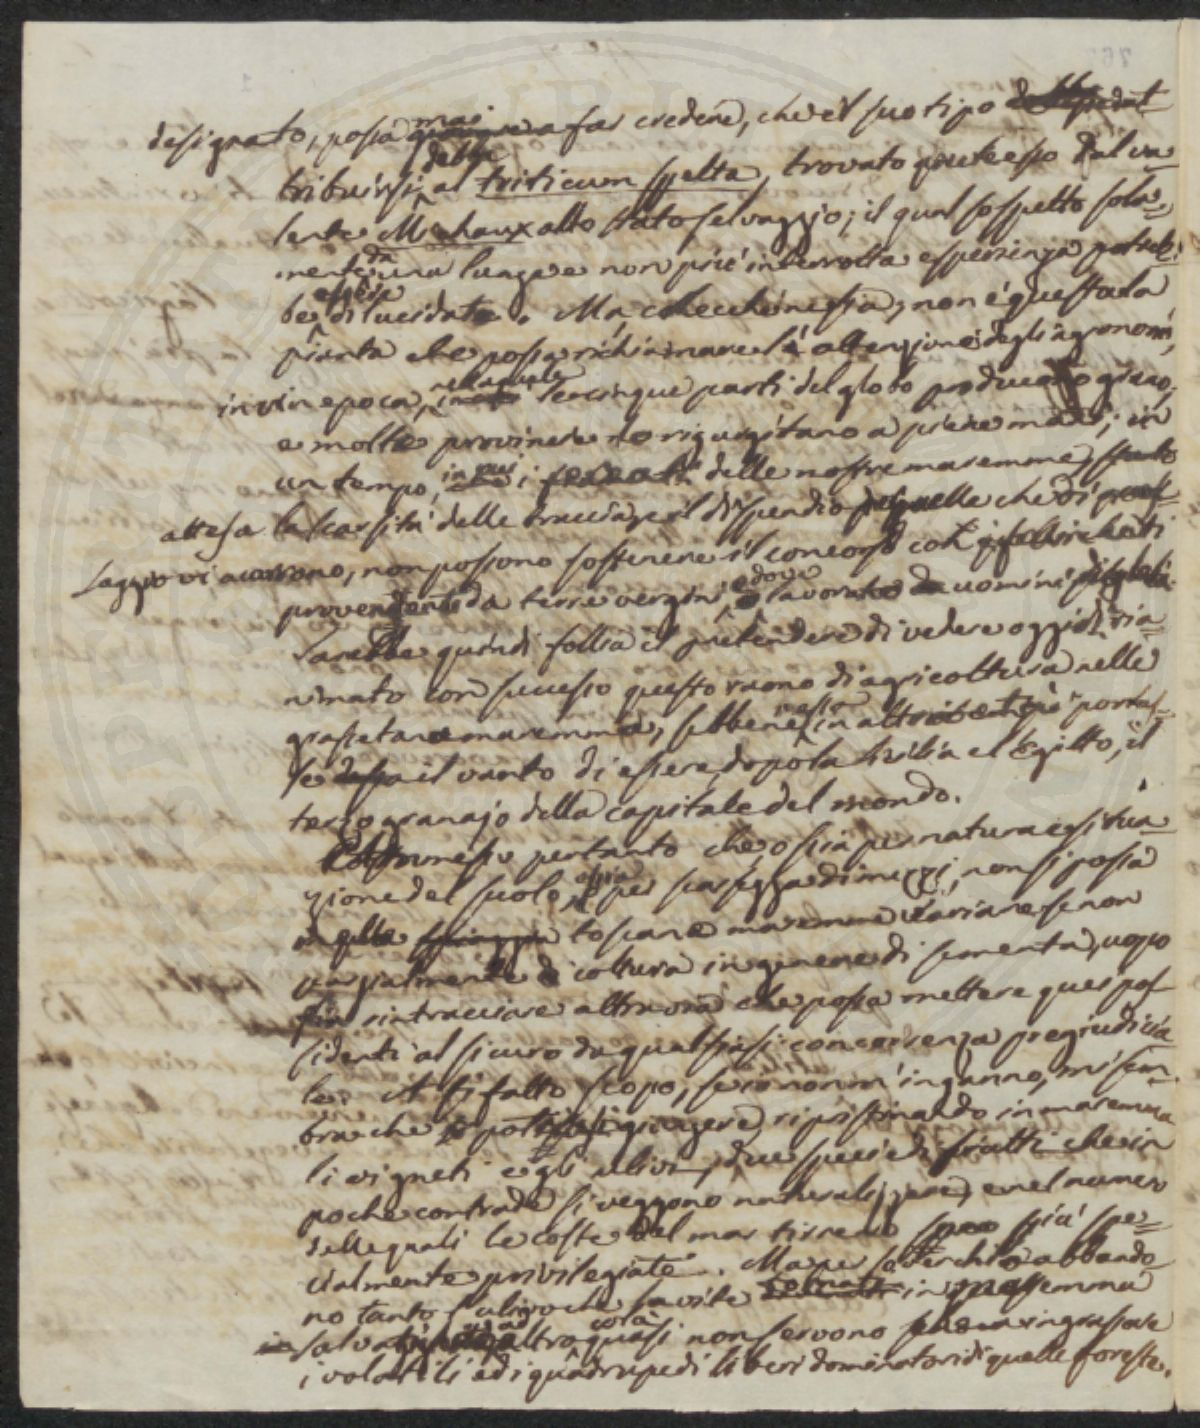 designato, possa mai far credere, che il suo tipo
tribuirsi debba al triticum spelta, trovato pur esso dal va=
lente Michaux allo stato selvaggio; il qual sospetto sola=
mente da una lunga e non più interrotta esperienza potreb=
be essere dilucidato. Ma checchè ne sia, non è questa la
pianta che possa richiamare l'attenzione degli agronomi,
in un'epoca, nella quale le cinque parti del globo producano grano,
e molte provincie ne rigurgitano a piene mani; in
un tempo, in cui i delle nostre maremme,
attesa la scarsità delle braccia, e il dispendio di quelle che di pas=
saggio vi accorrono, non possono sostenere il concorso con
provenienti da terre vergini, e dove lavorate da uomini
Sarebbe quindi follia il pretendere di vedere oggidì ria=
nimato con successo questo ramo di agricoltura nelle
grossetane maremme, sebbene in altri tempi portas=
se il vanto di essere dopo la Sicilia e l'Egitto, il
terzo granajo della capitale del mondo.
Ammesso pertanto che o sia per natura e situa=
zione del suolo, o sia per scarsezza di mezzi, non si possa
toscane maremme variare se non
parzialmente coltura in genere di sementa, uopo
fia rintracciare altra via che possa mettere quei pos=
sidenti al sicuro da qualsiasi concorrenza pregiudicia=
le. A sì fatto scopo, se io non m'inganno, mi sem=
bra che potrebbesi giungere, ripristinando in maremma
li vigneti e gli ulivi, due specie di frutti che in
poche contrade si veggono naturalizzare, e nel numero
delle quali le coste del mar tirreno son più spe=
cialmente privilegiate. Ma per soverchio abbando=
no tanto l'ulivo che la vite in maremma
ad altro colà quasi non servono che a ingrassare
i volatili ed i quadrupedi liberi dominatori di quelle foreste.